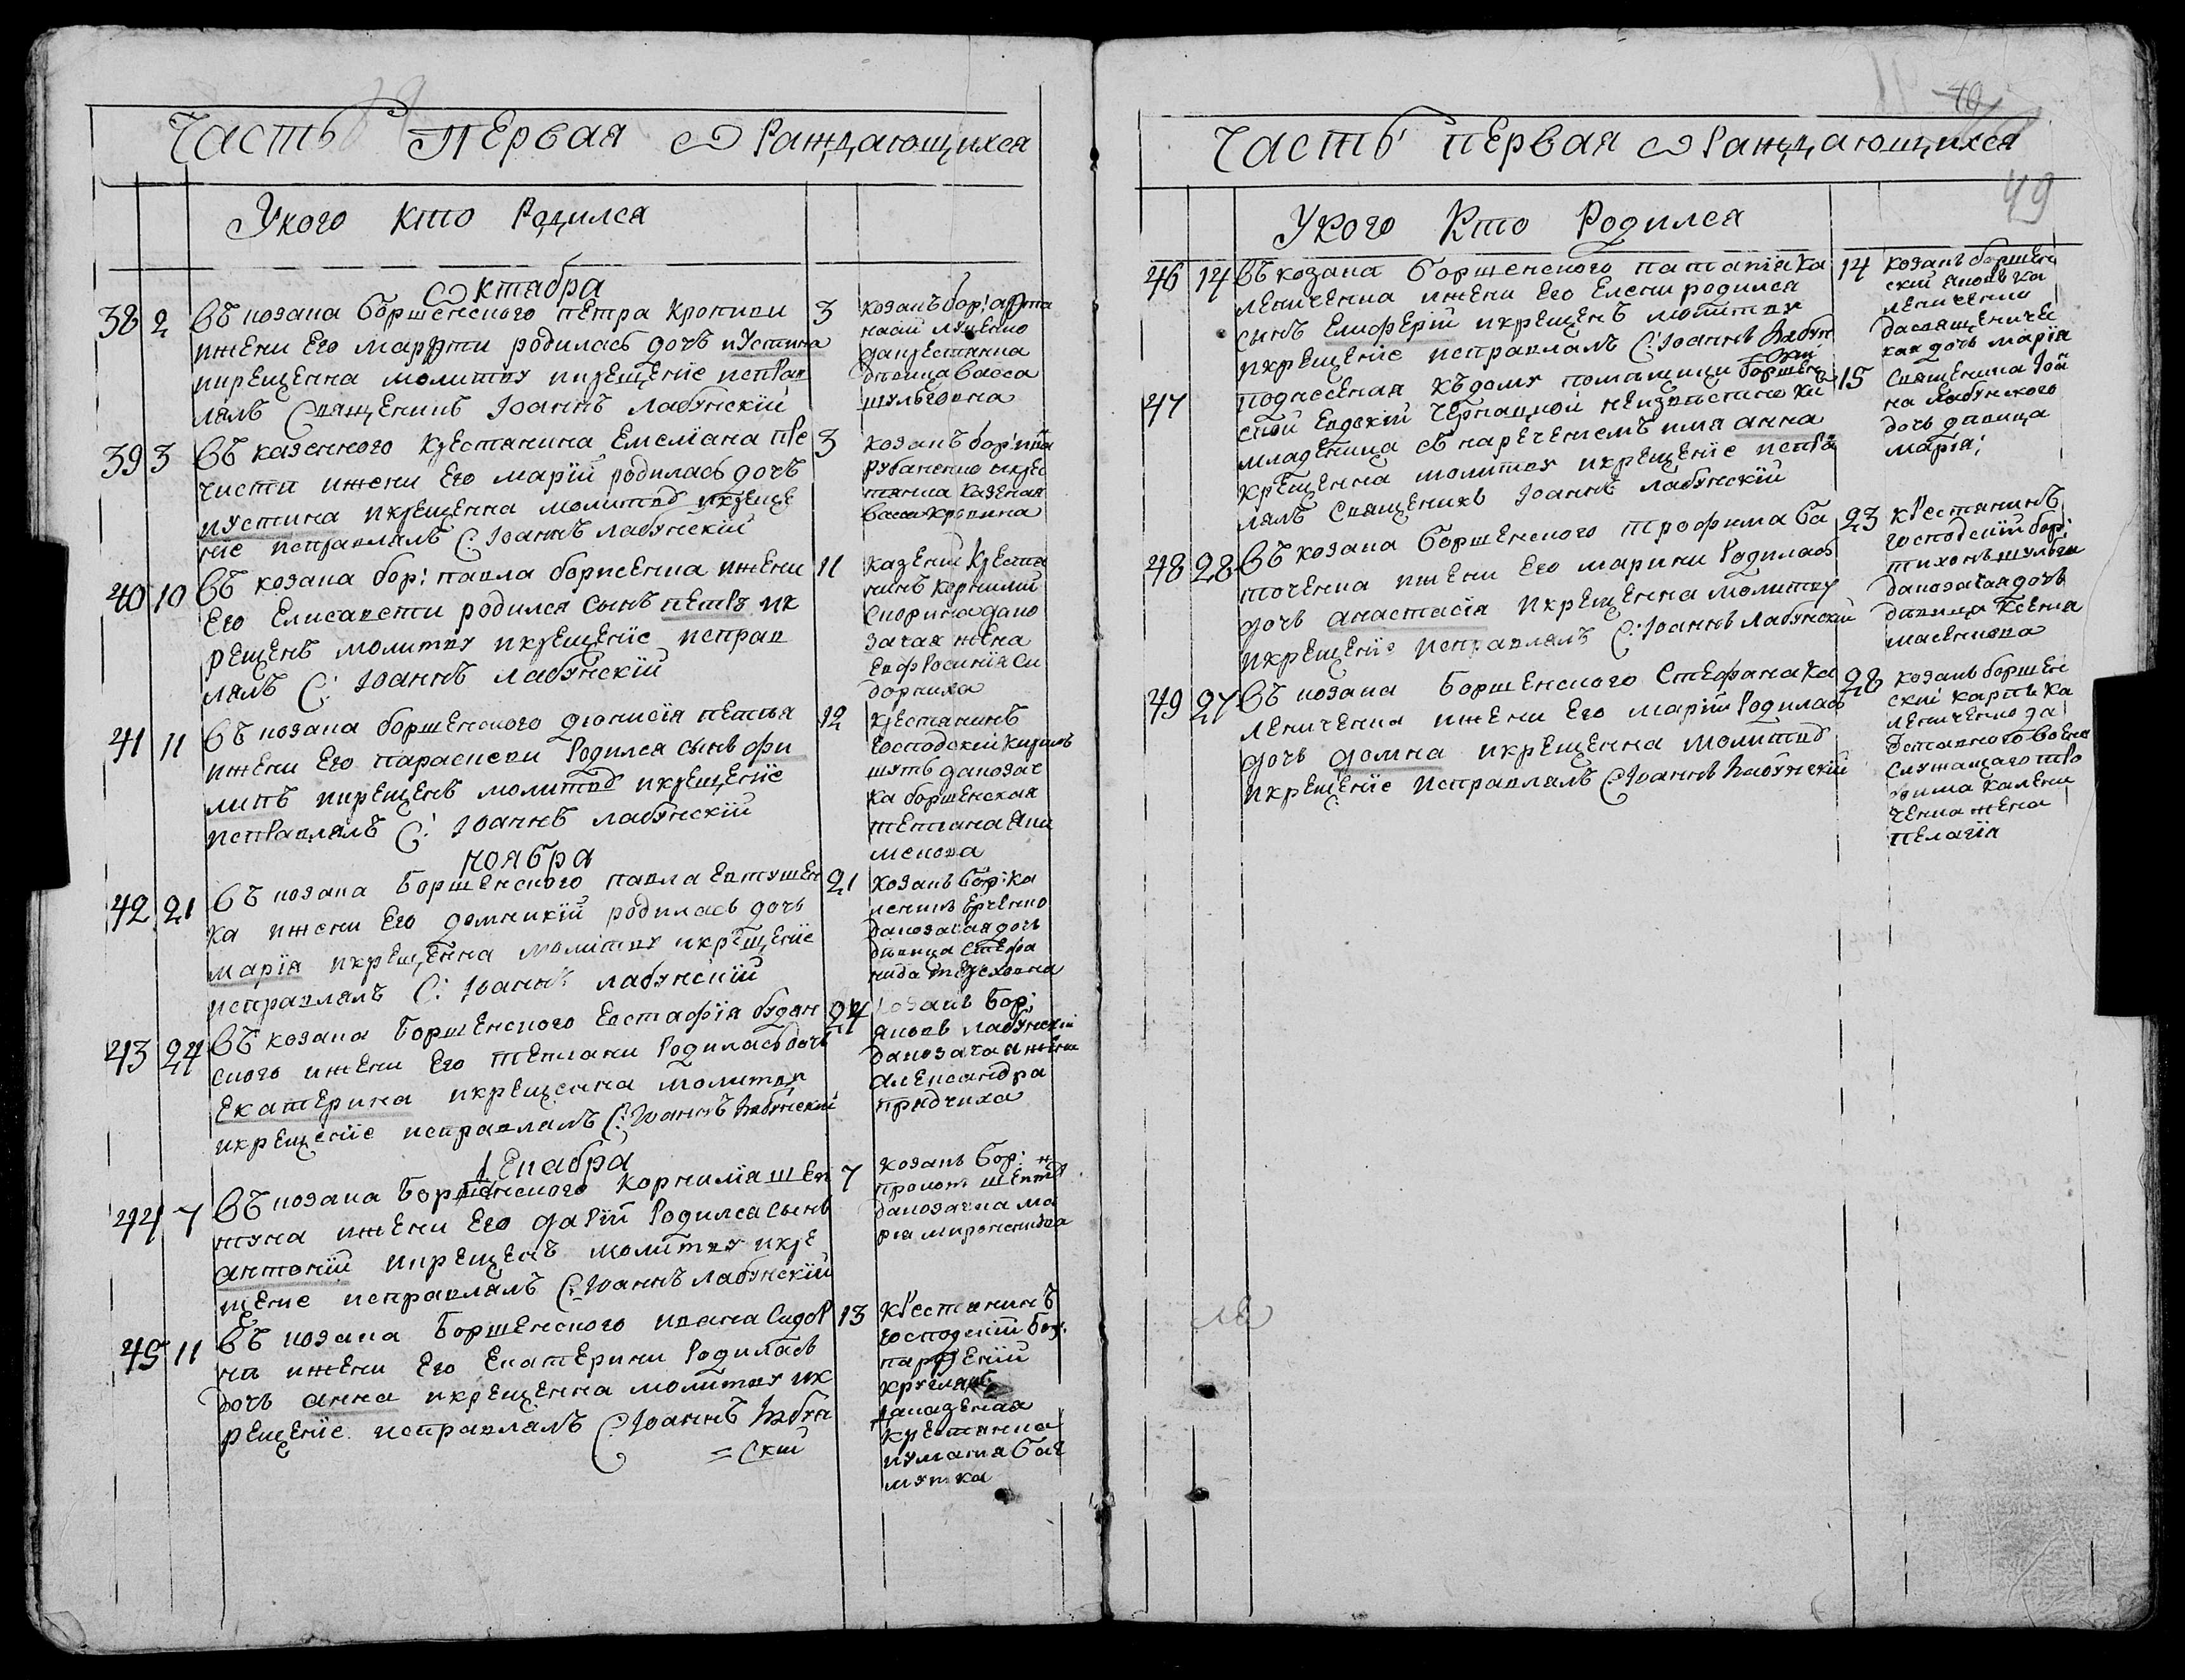 Часть первая ѡ Раждающихся
Укого кто Родился
ѡктабра
38 2 Въ козака боршенского петра кропиви
ижени Его марфти родилась дочъ иУстина
икрещенна молитву икрещеніе исправ
лялъ Священикъ Іоаннъ Лабунскій
3 козакъ бор: афта
насій луценко
дакрестянка
дѣвица Васса
шульговна
39 3 Въ казенного крестянина Емеліана пле
чисти ижени Его марій родилась дочъ
иустина икрещенна молитвӑ икреще
ніе исправлялъ С: Іоаннъ лабунскій
3 козакъ бор:
рубаненко икрес
тянка казеная
васса
40 10 Въ козака бор: павла борисенка ижени
Его Елисавети родился сынъ петръ ик
рещенъ молитву икрещеніе исправ
лялъ С: Іоаннъ лабунскій
11 казений крестя
нинъ корнилий
Скорина дако
зачая жена
Евфросинія си
дорчиха
41 11 Въ козака боршенского дионисія
ижени Его параскеви Родился сынъ фи
липъ икрещенъ молитвӑ икрещеніе
исправлялъ С: Іоаннъ лабунскій
12 крестянинъ
господскій кирилъ
шуть дакозач
ка боршенская
тетiана Яки
менкова
ноябра
42 21 Въ козака боршенского павла Евтушен
ка ижени Его домникій родилась дочъ
марія икрещенна молитву икрещеніе
исправлялъ С: Іоаннъ лабунскій
21 козакъ бор: ка
леникъ Ерченко
дакозачая дочъ
дѣвица стефа
нида
43 24 Въ козака боршенского Евстафія будан
ского ижени Его тетіани Родилась дочъ
Екатерина икрещенна молитву
икрещеніе исправлялъ С: Іоаннъ лабунскій
24 козакъ бор:
яковъ лабунскій
дакозачая жена
александра
прядчиха
декабра
44 7 Въ козака боршенского корнилія шеп
туна ижени Его дарій Родился сынъ
антоній икрещенъ молитву икре
щеніе исправлялъ С: Іоаннъ лабунскій
7 козакъ бор:
прокопъ шепту
дакозачка ма
рія мироненкова
45 11 Въ козака боршенского ивана сидор
ки ижени Его Екатерини Родилась
дочъ анна икрещенна молитву ик
рещеніе исправлялъ С: Іоаннъ лабун
=скій
13 крестянинъ
господскій бор:
парфеній
дакаденая
крестянка
иуліанія баг
мутка
49
Часть первая ѡ Раждающихся
Укого Кто Родился
46 14 Въ козака боршенского патапія ка
лениченка ижени Его Елени родился
сынъ Елиферій икрещенъ молитву
икрещеніе исправлялъ С: Іоаннъ лабун
скій
14 козакъ боршен
скій яковъ ка
лениченко
дасвященичес
кая дочъ марія
47 поднесеная къ дому помѣщици боршен
ской Евдокій Чернавкой неизвѣстно ки
младеница съ наречениемъ имя анна
крещенна молитву икрещеніе испра
лялъ Священикъ Іоаннъ лабунскій
15 Священика Іоа
на лабунского
дочъ дѣвица
марія:
48 28 Въ козака боршенского трофима ба
точенка ижени Его марини Родилась
дочъ анастасія икрещенна молитву
икрещеніе исправлялъ С: Іоаннъ лабунскій
23 крестянинъ
господскій бор:
тихонъ шульга
дакозачая дочъ
дѣвица ксенія
масенкова
49 27 Въ козака боршенского стефана ка
лениченка ижени Его марій Родилась
дочъ домна икрещенна молитвӑ
икрещеніе исправлялъ С: Іоаннъ лабунскій
28 козакъ боршен
скій карпъ ка
леничеико да
ѡтавного воена
служащаго тро
фима калени
ченка жена
пелагія